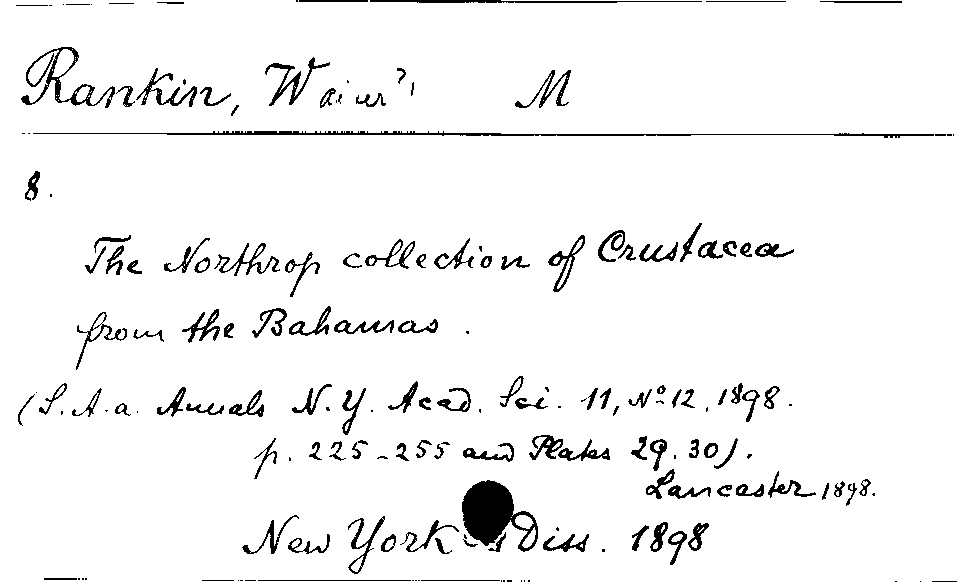 Rankin, M
8.
The Northrop collection of Crustacea
from the Bahamas.
(S. A. a. Annals N. Y. Acad. Sci. 11, No 12, 1898.
p. 225-255 and Plates 29. 30).
Lancaster 1898.
New York Diss. 1898